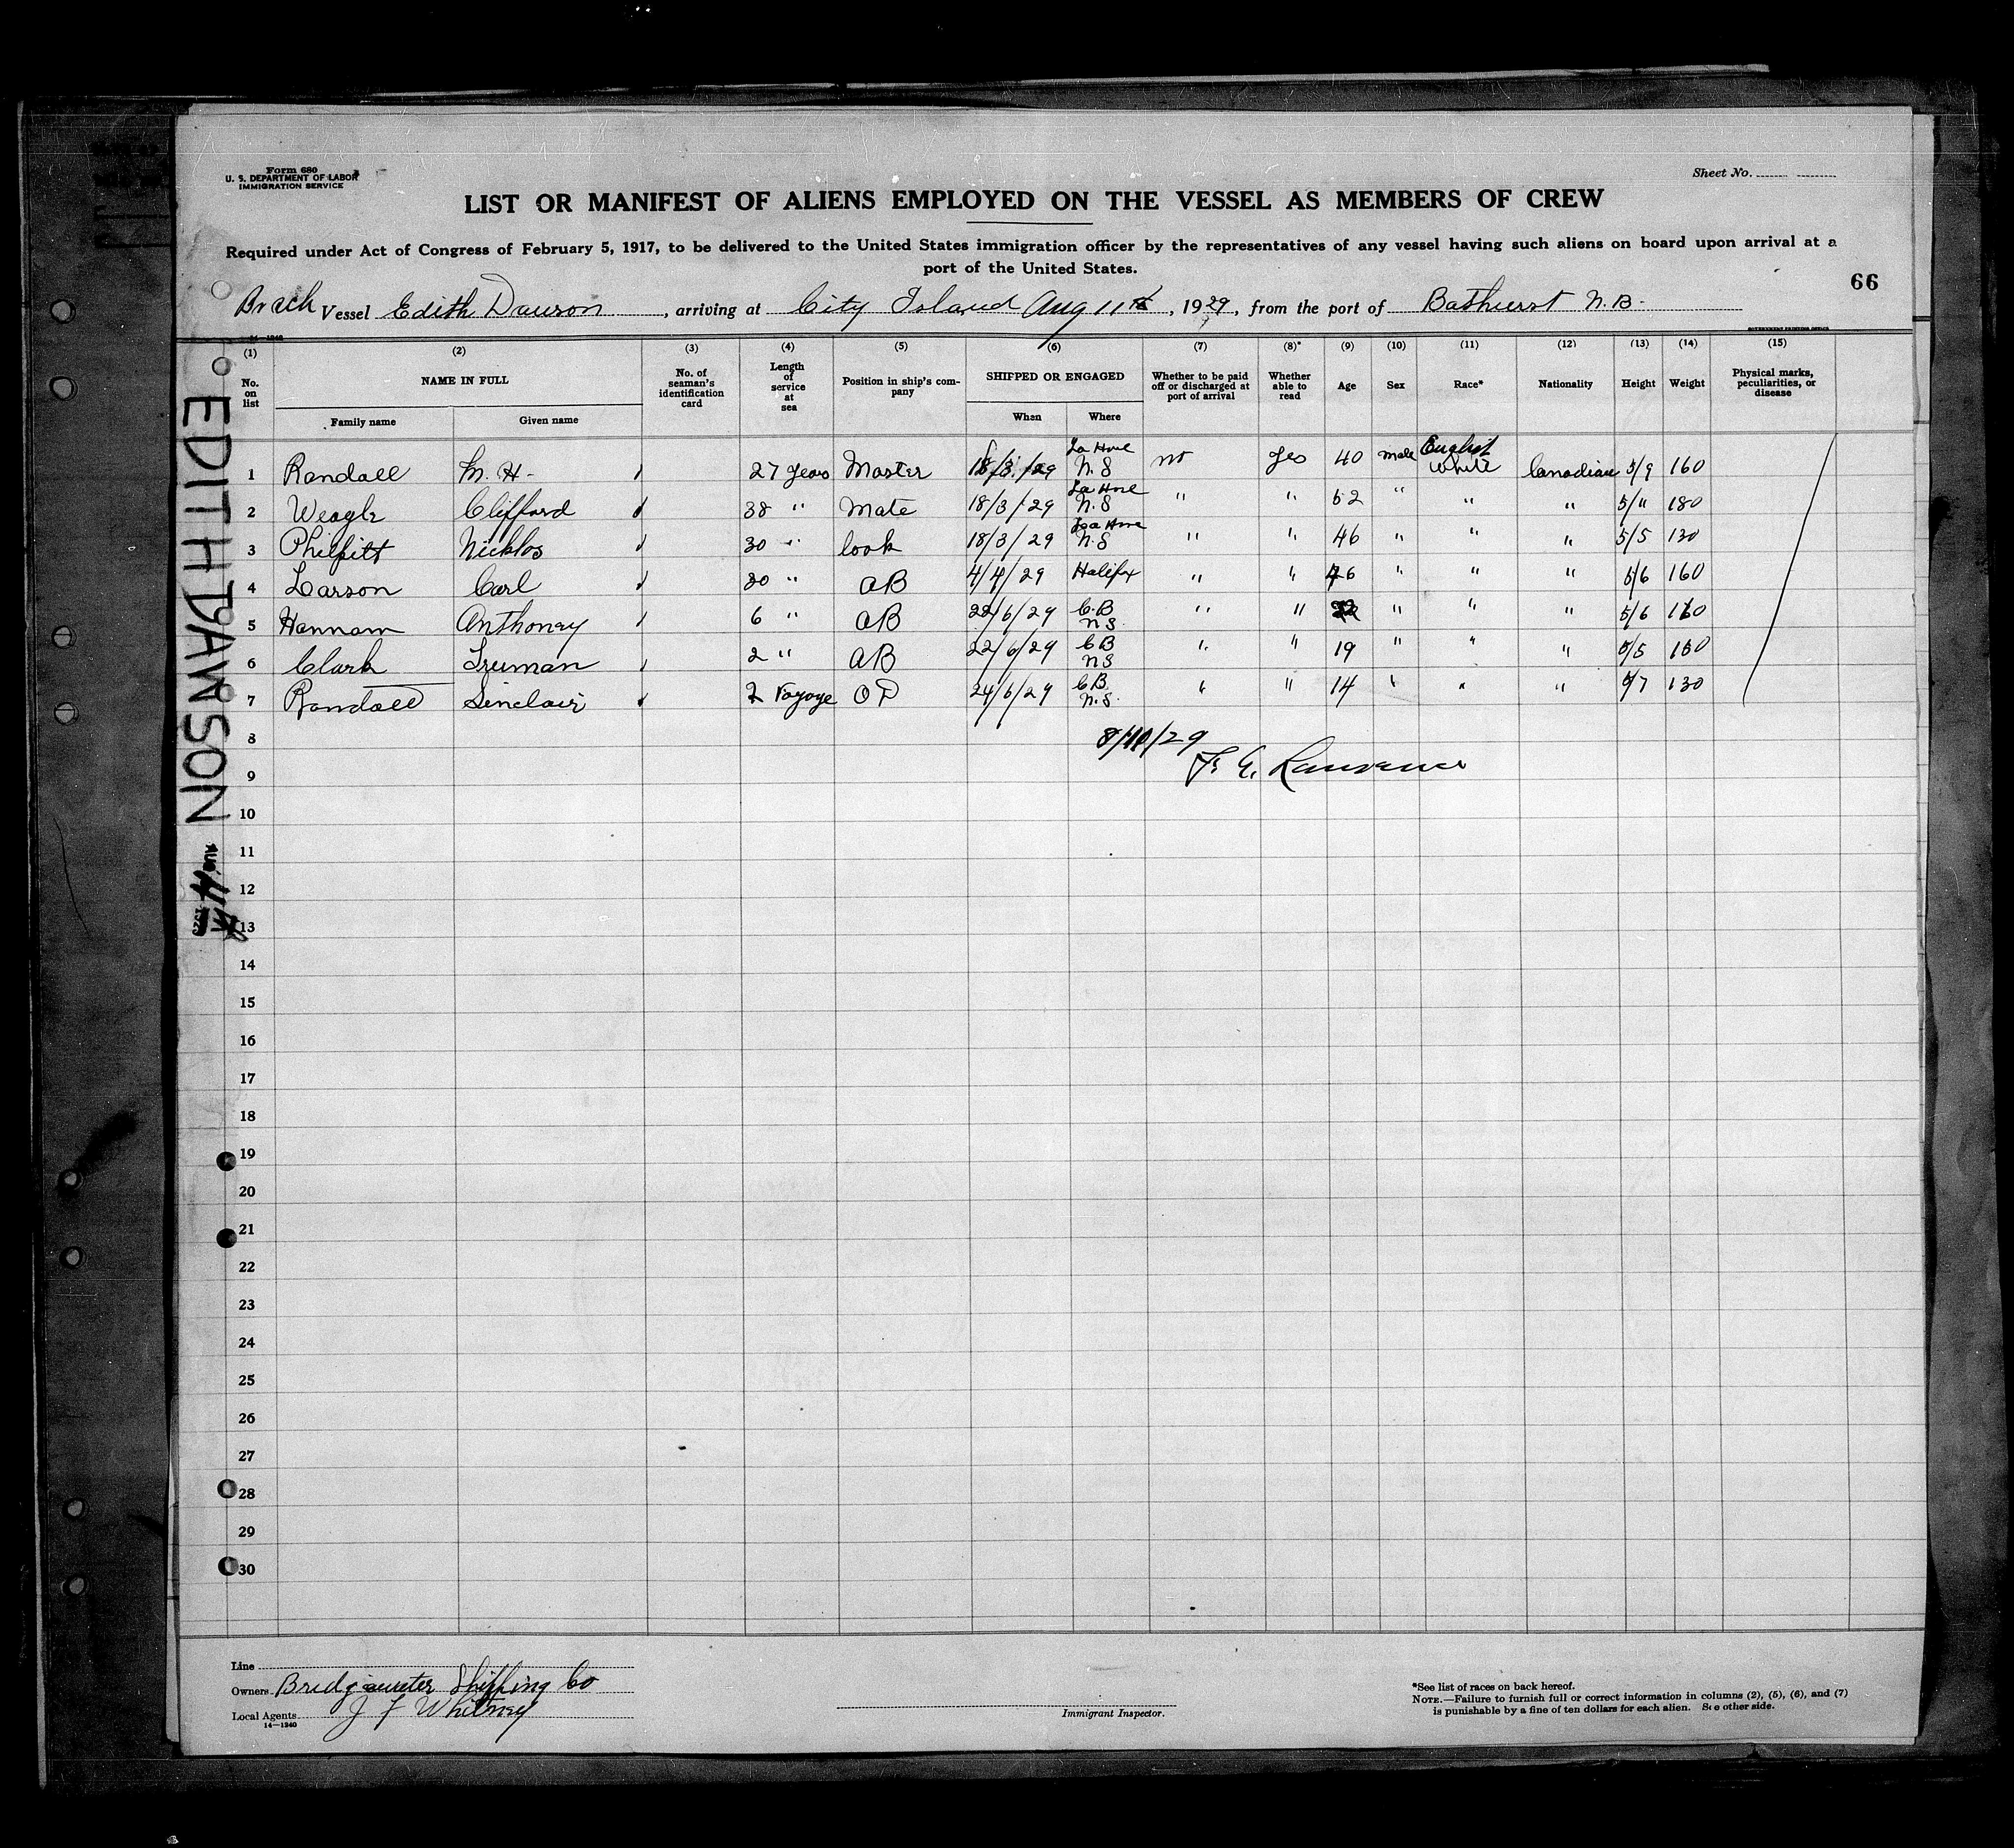 Form 680
U. S. DEPARTMENT OF LABOR
IMMIGRATION SERVICE
Sheet No.
LIST OR MANIFEST OF ALIENS EMPLOYED ON THE VESSEL AS MEMBERS OF CREW
Required under Act of Congress of February 5, 1917, to be delivered to the United States immigration officer by the representatives of any vessel having such aliens on board upon arrival at a
port of the United States.
66
Vessel Edith Dawson, arriving at City Island Aug 11th, 1929, from the port of Bathurst N.B.
GOVERNMENT PRINTING OFFICE
(1) (2) (3) (4) (5) (6) (7) (8)* (9) (10) (11) (12) (13) (14) (15)
No. on list NAME IN FULL No. of seaman's identification card Length of service at sea Position in ship's company SHIPPED OR ENGAGED Whether to be paid off or discharged at port of arrival Whether able to read Age Sex Race* Nationality Height Weight Physical marks, peculiarities, or disease
Family name Given name When Where
1 Randall M. H. 27 years Master 18/3/29 La Have N.S no yes 40 male English white Canadian 5/9 160
2 Weagle Clifford 38 " Mate 18/3/29 La Have N.S " " 52 " " " 5/11 180
3 Philpitt Nicklos 30 " Cook 18/3/29 La Have N.S " " 46 " " " 5/5 130
4 Larson Carl 30 " AB 4/4/29 Halifax " " 46 " " " 5/6 160
5 Hannam Anthoney 6 " AB 22/6/29 C.B N.S. " " " " " 5/6 160
6 Clark Truman 2 " AB 22/6/29 CB NS " " 19 " " " 5/5 150
7 Randall Sinclair 2 Voyage 24/6/29 C.B. N.S. " " 14 " " " 5/7 130
8
8/10/29
9
10
11
12
13
14
15
16
17
18
19
20
21
22
23
24
25
26
27
28
29
30
EDITH DAWSON
AUG 11th
Line
Owners Bridgewater Shipping Co
Local Agents J F Whitney
14—1240
Immigrant Inspector.
*See list of races on back hereof.
NOTE.—Failure to furnish full or correct information in columns (2), (5), (6), and (7)
is punishable by a fine of ten dollars for each alien. See other side.